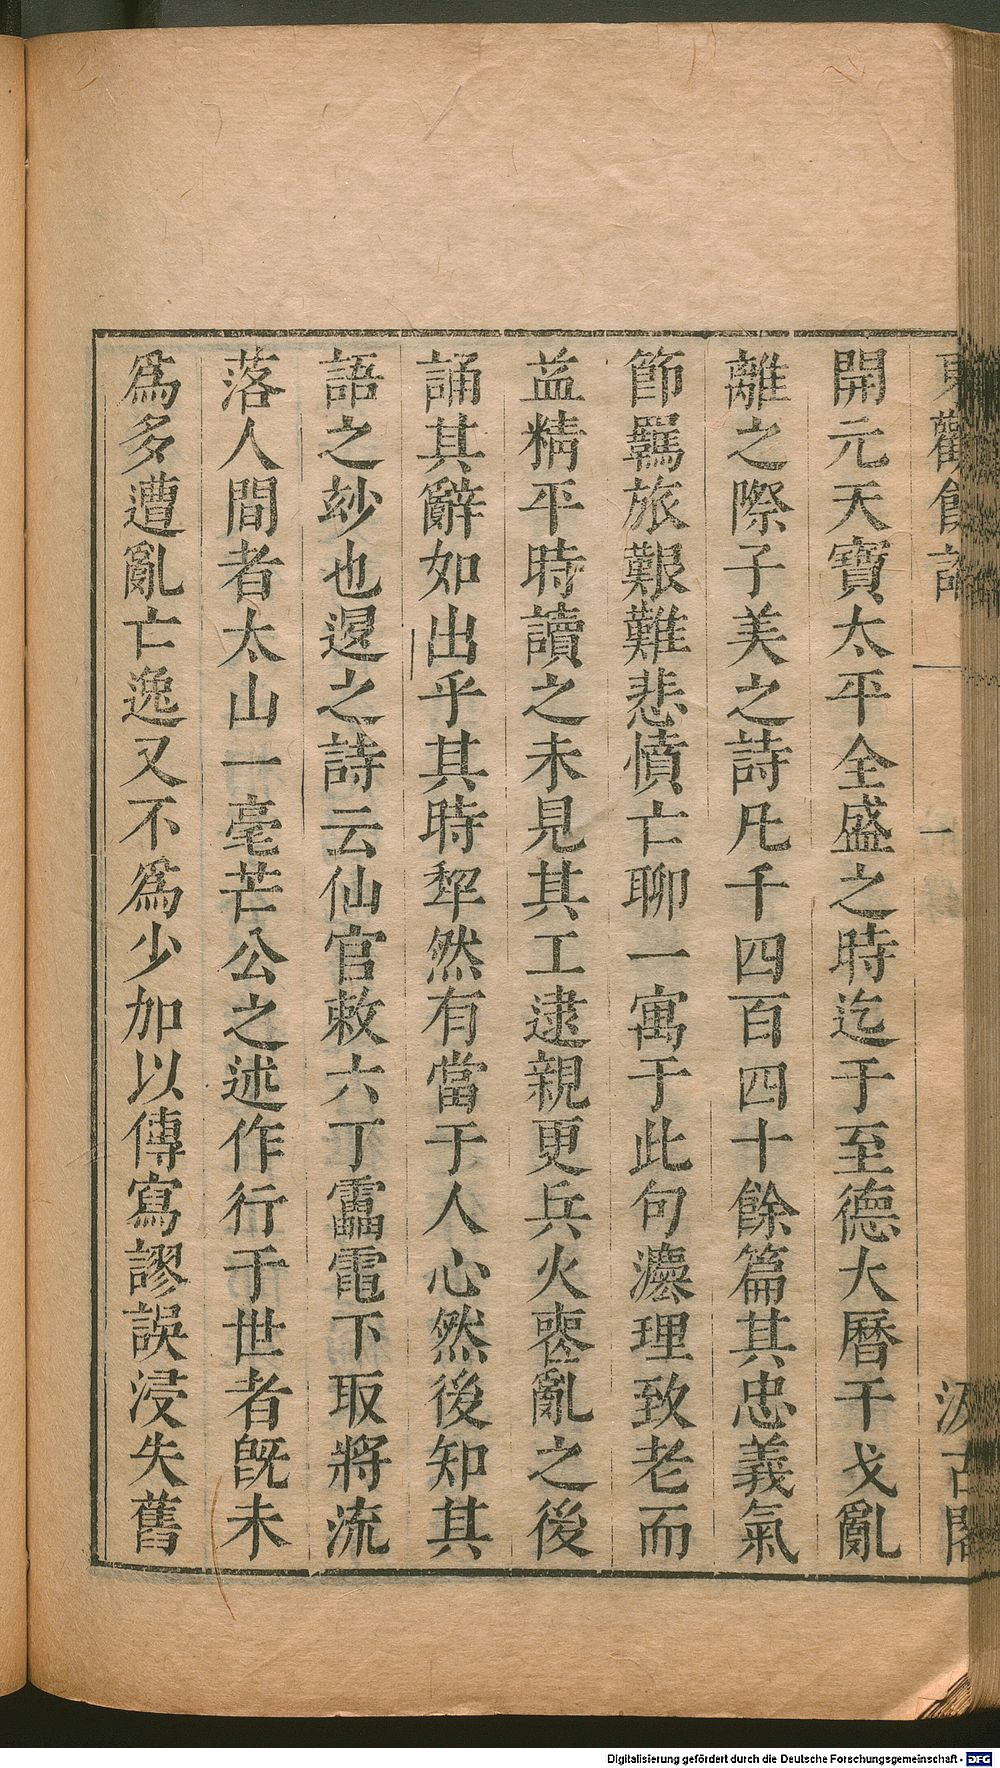 東觀餘論
一
一
汲古閣
開元天寶太平全盛之時迄于至德大曆干戈亂
離之際子美之詩凡千四百四十餘篇其忠義氣
節羈旅艱難悲憤亡聊一寓于此句灋理致老而
益精平時讀之未見其工逮親更兵火喪亂之後
誦其辭如出乎其時犂然有當于人心然後知其
語之玅也退之詩云仙官敕六丁靁電下取將流
落人間者太山一毫芒公之述作行于世者旣未
爲多遭亂亡逸又不爲少加以傳寫謬誤浸失舊
Digitalisierung gefördert durch die Deutsche Forschungsgemeinschaft - DFG